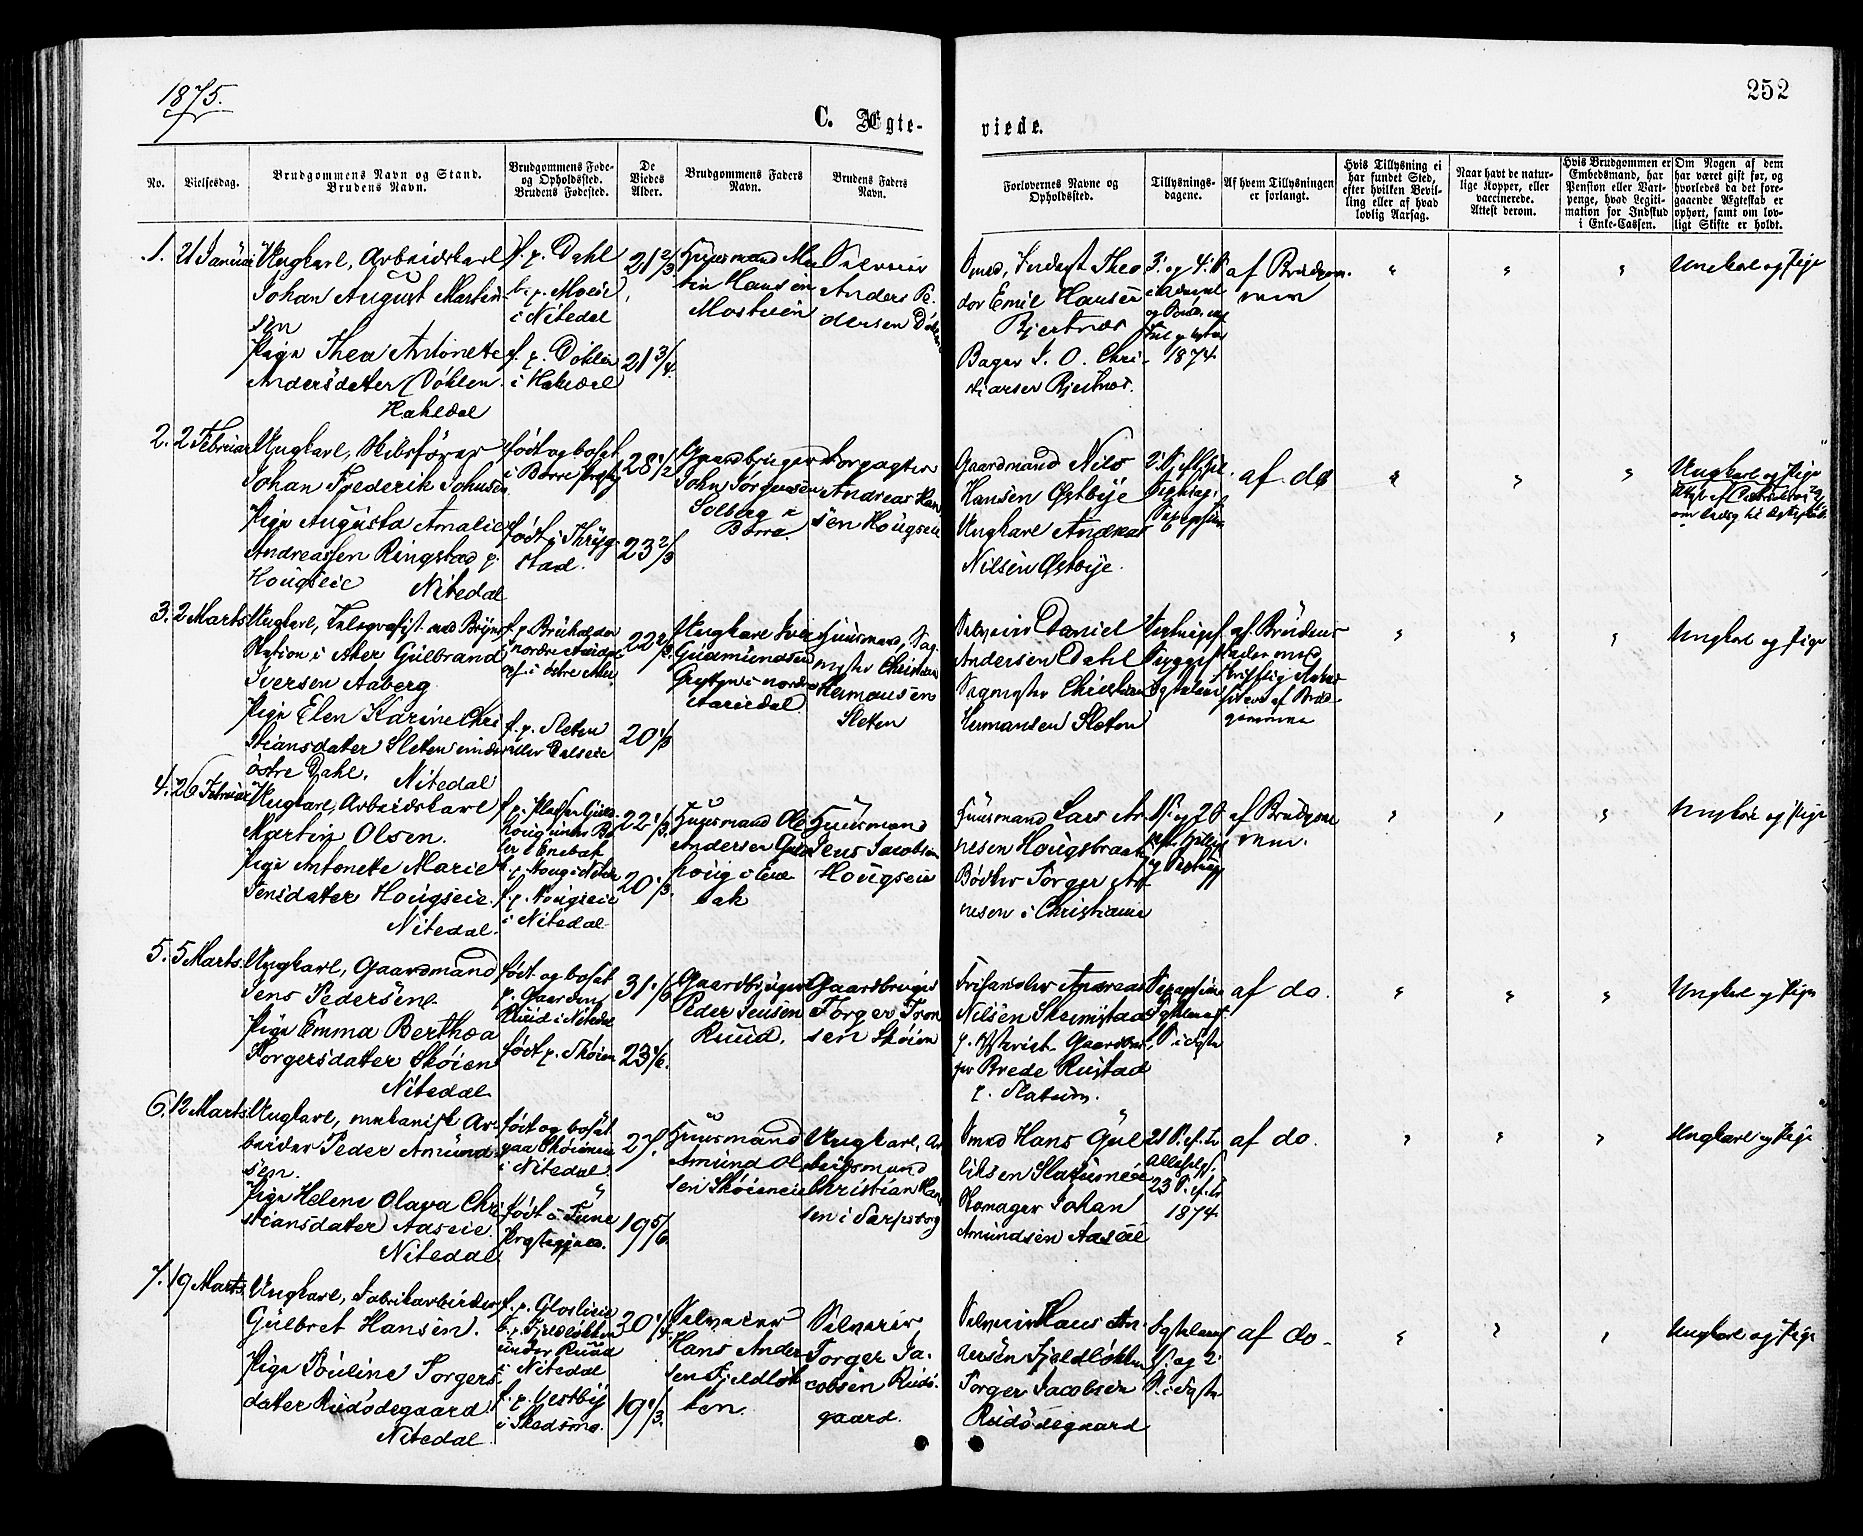 1875.
252
C. Ægteviede.
No.
Vielsesdag.
Brudgommens Navn og Stand.
Brudens Navn.
Brudgommens Føde-
og Opholdssted.
Brudens Fødested.
De
Viedes
Alder.
Brudgommens Faders
Navn.
Brudens Faders
Navn.
Forlovernes Navne og
Opholdssted.
Tillysnings-
dagene.
Af hvem Tillysningen
er forlangt.
Hvis Tillysning ei
har fundet Sted,
efter hvilken Bevil-
ling eller af hvad
lovlig Aarsag.
Naar havt de natur-
lige Kopper, eller
vaccinerede.
Attest derom.
Hvis Brudgommen er
Embedsmand, har
Pension eller Vart-
penge, hvad Legiti-
mation for Indskud
i Enke-Cassen.
Om Nogen af dem
har været gift før, og
hvorledes da det fore-
gaaende Ægteskab er
ophørt, samt om lov-
ligt Skifte er holdt.
1. 21 Januar
Ungkarl, Arbeidskarl
Johan August Martin
sen
Pige Thea Antonete
Andersdater Døhlen
Hakedal
f. p. Dahl
b. p. Moeie
i Nitedal
f. p. Døhlen
i Hakedal
21 2/3
21 3/4
Huusmand Mar
tin Hansen
Mostuen
Selveier
Anders Pe-
dersen Døhlen
Smed, Inderst Theo
dor Emil Hansen
Bjertnæs
Bager J. O. Chri-
stiansen Bjertnæs
3. og 4. S.
i Advent
1874.
af Brudgom-
men
" " "
Ungkarl og Pige
2. 2 Februar
Ungkarl, Skibsfører
Johan Frederik Johnsen
Pige Augusta Amalie
Andreassen Ringstad p.
Hougseie Nitedal
født og bosat
i Borre Prstgj
født i Thryg-
stad.
28 1/2
23 2/3
Gaardbruger
John Jørgensen
Solberg i
Borre
Forpagter
Andreas Han
sen Hougseie
Gaardmand Nils
Hansen Østbye
Ungkarl Andreas
Nilsen Østbye.
af do
" " "
Ungkarl og Pige
3. 2 Marts
Ungkarl, Telegrafist ved Bryns
Station i Aker Gulbrand
Iversen Aaberg
Pige Elen Karine Chri
stiansdater Sleten under
østre Dahl. Nitedal
nordre Aurdal
opf. i østre Aker
f. p. Sleten
eller Dalseie
22 2/3
20 1/3
Ungkarl Iver
Gudmundsen
i nordre
Aurdal
Huusmand, Sag-
mester Christian
Hermansens
Sleten
Selveier Daniel
Andersen Dahl
Sagmester Christian
Hermansen Sleten
af Brudens
Fader med
skriftlig
af Brud-
gommen
" " "
Ungkarl og Pige
4. 26 Februar
Ungkarl, Arbeidskarl
Martin Olsen.
Pige Antonete Marie
Jensdater Hougseie.
Nitedal.
i Enebak
b. p. Houg i Nitedal
f. p. Hougseie
i Nitedal
22 1/3
20 1/3.
Huusmand Ole
Andersen Guld
houg i Ene
bak
Huusmand
Jens Jacobsen
Hougseie
Huusmand Lars Ar
nesen Hougsbraat
Bødker Torger Ar
nesen i Christiania
af Brudgom
men.
" " "
Ungkarl og Pige
5. 5 Marts.
Ungkarl, Gaardmand
Jens Pedersen.
Pige Emma Berthea
Torgersdater Skøien
Nitedal
født og bosat
p. Gaarden
Ruud i Nitedal
født p. Skøien
31 1/6
23 1/6.
Gaardbruger
Peder Jensen
Ruud.
Gaardbruger
Torger Tron
sen Skøien
Andreas
Nilsen Skrimstad
Gaardbru
ger Brede Rustad
p. Slatum.
af do.
" " "
Ungkarl og Pige
6. 12 Marts
Ungkarl, mekanisk Ar-
beider Peder Amund
sen.
Pige Helene Olava Chri
stiansdater Aaseie.
Nitedal
født og bosat
paa Skøieneie
i Nitedal.
født i Tune
Prstegjeld.
27.
19 5/6
Huusmand
Amund Ol
sen Skøieneie
Ungkarl, Ar
beidsmand
Christian Han
sen i Sarpsborg
Smed Hans Gul
liksen Slatumeie
Skomager Johan
Amundsen Aaseie
21 S. ef. Tr
23 S. ef. Tr
1874.
af do.
" " "
Ungkarl og Pige
7. 19 Marts.
Ungkarl, Fabrikarbeider
Gulbret Hansen.
Pige Pouline Torgers
dater Rudødegaard.
Nitedal
b. p. Fjeldløkken
under Ruud
i Nitedal
f. p. Gjestby
i Skedsmo.
20 1/4
19 1/3.
Selveier
Hans Ander
sen Fjeldløk
ken.
Selveier
Torger Ja-
cobsen Rudø-
gaard.
Selveier Hans An-
dersen Fjeldløkken
Torger Jacobsen
Rudødegaard
Fastelavns
S. og 2
S. i Faste
af do.
" " "
Ungkarl og Pige